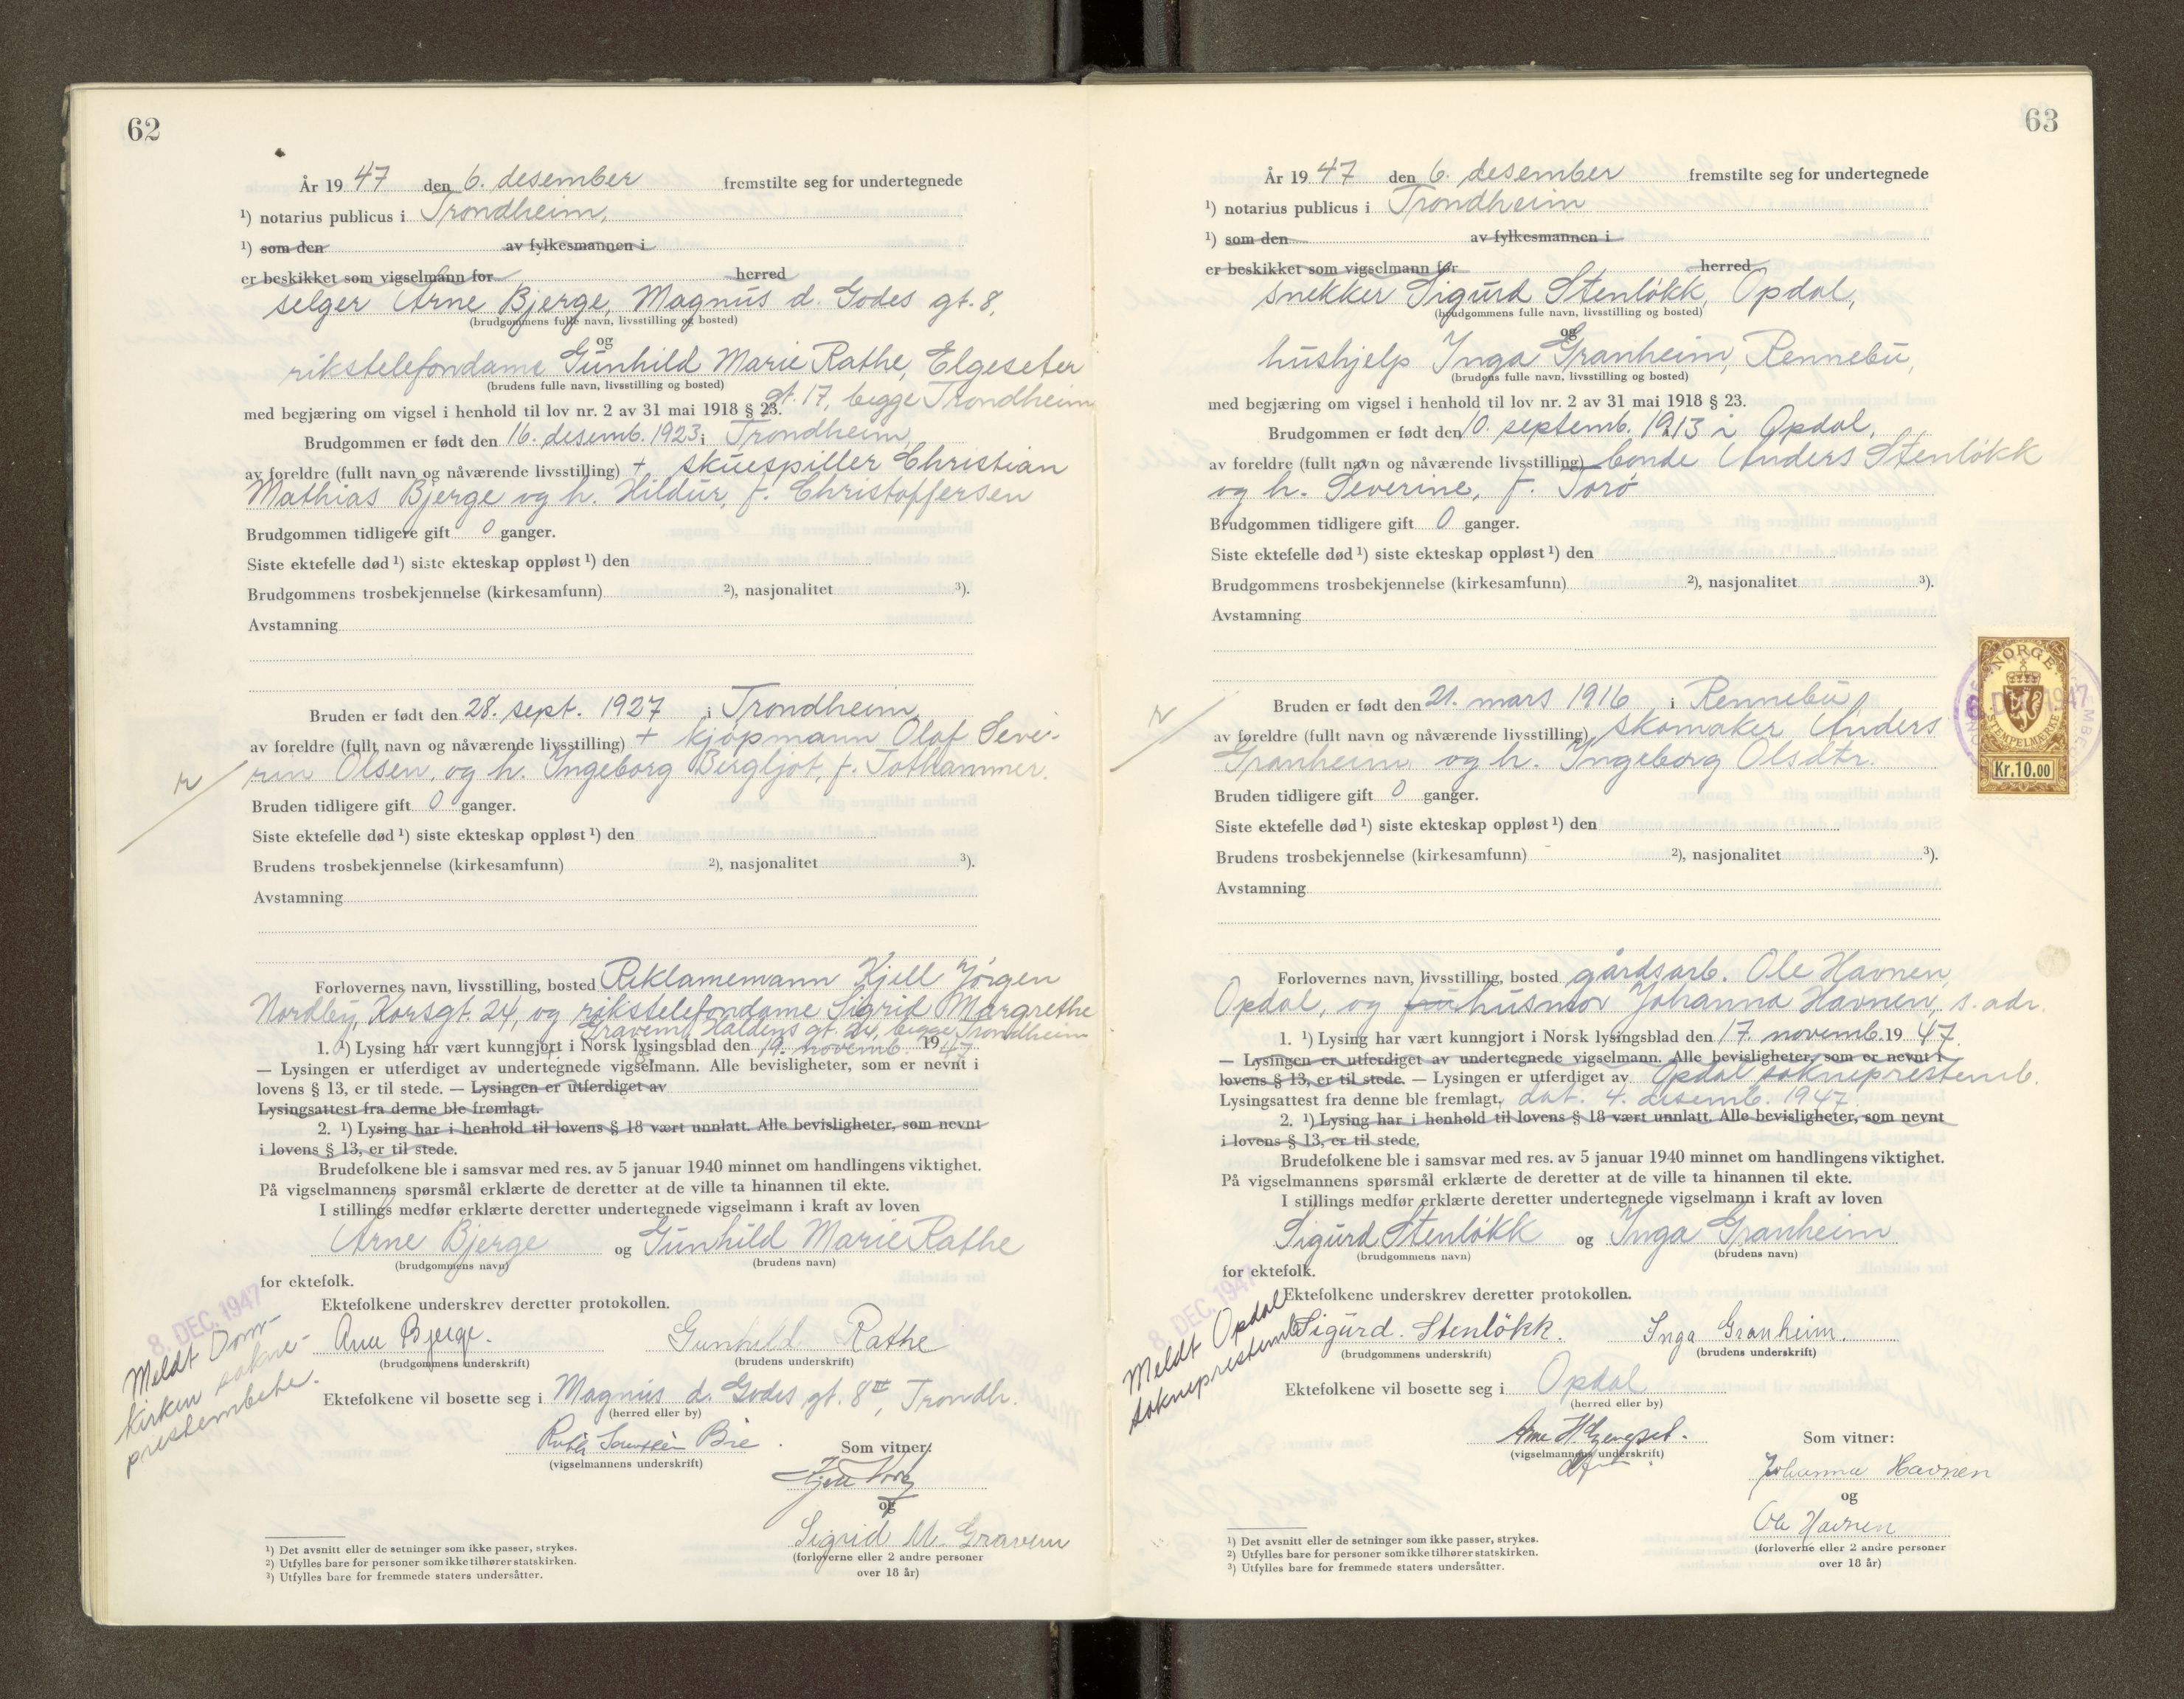 62
År 1947 den 6. desember fremstilte seg for undertegnede
¹) notarius publicus i Trondheim,
¹) som den av fylkesmannen i
er beskikket som vigselmann for herred
selger Arne Bjerge, Magnus d. Godes gt. 8,
(brudgommens fulle navn, livsstilling og bosted)
og
rikstelefondame Gunhild Marie Rathe, Elgeseter
(brudens fulle navn, livsstilling og bosted)
gt. 17, begge Trondheim
med begjæring om vigsel i henhold til lov nr. 2 av 31 mai 1918 § 23.
Brudgommen er født den 16. desemb. 1923 i Trondheim,
av foreldre (fullt navn og nåværende livsstilling) + skuespiller Christian
Mathias Bjerge og h. Hildur, f. Christoffersen
Brudgommen tidligere gift 0 ganger.
Siste ektefelle død ¹) siste ekteskap oppløst ¹) den
Brudgommens trosbekjennelse (kirkesamfunn) ²), nasjonalitet ³).
Avstamning
Bruden er født den 28. sept. 1927 i Trondheim,
av foreldre (fullt navn og nåværende livsstilling) + kjøpmann Olaf Seve-
rin Olsen, og h. Ingeborg Bergljot, f. Tothammer.
Bruden tidligere gift 0 ganger.
Siste ektefelle død ¹) siste ekteskap oppløst ¹) den
Brudens trosbekjennelse (kirkesamfunn) ²), nasjonalitet ³).
Avstamning
Forlovernes navn, livsstilling, bosted Reklamemann Kjell Jørgen
Nordby, Korsgt. 24, og rikstelefondame Sigrid Margrethe
Gravem, Haldens gt. 24, begge Trondheim
1. ¹) Lysing har vært kunngjort i Norsk lysingsblad den 19. novemb. 1947
— Lysingen er utferdiget av undertegnede vigselmann. Alle bevisligheter, som er nevnt i
lovens § 13, er til stede. — Lysingen er utferdiget av
Lysingsattest fra denne ble fremlagt.
2. ¹) Lysing har i henhold til lovens § 18 vært unnlatt. Alle bevisligheter, som nevnt
i lovens § 13, er til stede.
Brudefolkene ble i samsvar med res. av 5 januar 1940 minnet om handlingens viktighet.
På vigselmannens spørsmål erklærte de deretter at de ville ta hinannen til ekte.
I stillings medfør erklærte deretter undertegnede vigselmann i kraft av loven
Arne Bjerge og Gunhild Marie Rathe
(brudgommens navn) (brudens navn)
for ektefolk.
8. DEC. 1947
Meldt Dom-
kirken sokne-
prestembete.
Ektefolkene underskrev deretter protokollen.
Arne Bjerge. Gunhild Rathe
(brudgommens underskrift) (brudens underskrift)
Ektefolkene vil bosette seg i Magnus d. Godes gt. 8 II, Trondh.
(herred eller by)
Som vitner:
(vigselmannens underskrift)
og
Sigrid M. Gravem
(forloverne eller 2 andre personer
over 18 år)
¹) Det avsnitt eller de setninger som ikke passer, strykes.
²) Utfylles bare for personer som ikke tilhører statskirken.
³) Utfylles bare for fremmede staters undersåtter.
63
År 1947 den 6. desember fremstilte seg for undertegnede
¹) notarius publicus i Trondheim
¹) som den av fylkesmannen i
er beskikket som vigselmann for herred
snekker Sigurd Stenløkk, Opdal,
(brudgommens fulle navn, livsstilling og bosted)
og
hushjelp Inga Granheim, Rennebu,
(brudens fulle navn, livsstilling og bosted)
med begjæring om vigsel i henhold til lov nr. 2 av 31 mai 1918 § 23.
Brudgommen er født den 10. septemb. 1913 i Opdal,
av foreldre (fullt navn og nåværende livsstilling) bonde Anders Stenløkk
og h. Severine, f. Torø
Brudgommen tidligere gift 0 ganger.
Siste ektefelle død ¹) siste ekteskap oppløst ¹) den
Brudgommens trosbekjennelse (kirkesamfunn) ²), nasjonalitet ³).
Avstamning
Bruden er født den 21. mars 1916 i Rennebu,
av foreldre (fullt navn og nåværende livsstilling) skomaker Anders
Granheim og h. Ingeborg Olsdtr.
NORGE
STEMPELMÆRKE
Kr.10.00
Bruden tidligere gift 0 ganger.
Siste ektefelle død ¹) siste ekteskap oppløst ¹) den
Brudens trosbekjennelse (kirkesamfunn) ²), nasjonalitet ³).
Avstamning
Forlovernes navn, livsstilling, bosted gårdsarb. Ole Havnen,
Opdal, og husmor Johanna Havnen, s. adr.
1. ¹) Lysing har vært kunngjort i Norsk lysingsblad den 17. novemb. 1947
— Lysingen er utferdiget av undertegnede vigselmann. Alle bevisligheter, som er nevnt i
lovens § 13, er til stede. — Lysingen er utferdiget av Opdal sokneprestemb.
Lysingsattest fra denne ble fremlagt, dat. 4. desemb. 1947
2. ¹) Lysing har i henhold til lovens § 18 vært unnlatt. Alle bevisligheter, som nevnt
i lovens § 13, er til stede.
Brudefolkene ble i samsvar med res. av 5 januar 1940 minnet om handlingens viktighet.
På vigselmannens spørsmål erklærte de deretter at de ville ta hinannen til ekte.
I stillings medfør erklærte deretter undertegnede vigselmann i kraft av loven
Sigurd Stenløkk og Inga Granheim
(brudgommens navn) (brudens navn)
for ektefolk.
8. DEC. 1947
Meldt Opdal
sokneprestemb.
Ektefolkene underskrev deretter protokollen.
Sigurd. Stenløkk. Inga Granheim.
(brudgommens underskrift) (brudens underskrift)
Ektefolkene vil bosette seg i Opdal
(herred eller by)
Som vitner:
(vigselmannens underskrift)
Johanna Havnen
og
Ole Havnen
(forloverne eller 2 andre personer
over 18 år)
¹) Det avsnitt eller de setninger som ikke passer, strykes.
²) Utfylles bare for personer som ikke tilhører statskirken.
³) Utfylles bare for fremmede staters undersåtter.